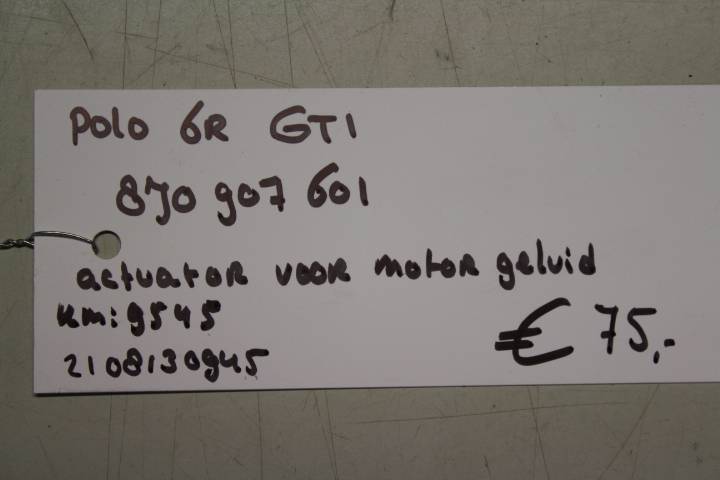 Polo 6R GTI
8J0 907 601
actuator voor motor geluid
km: 9545
€ 75,-
2108130945